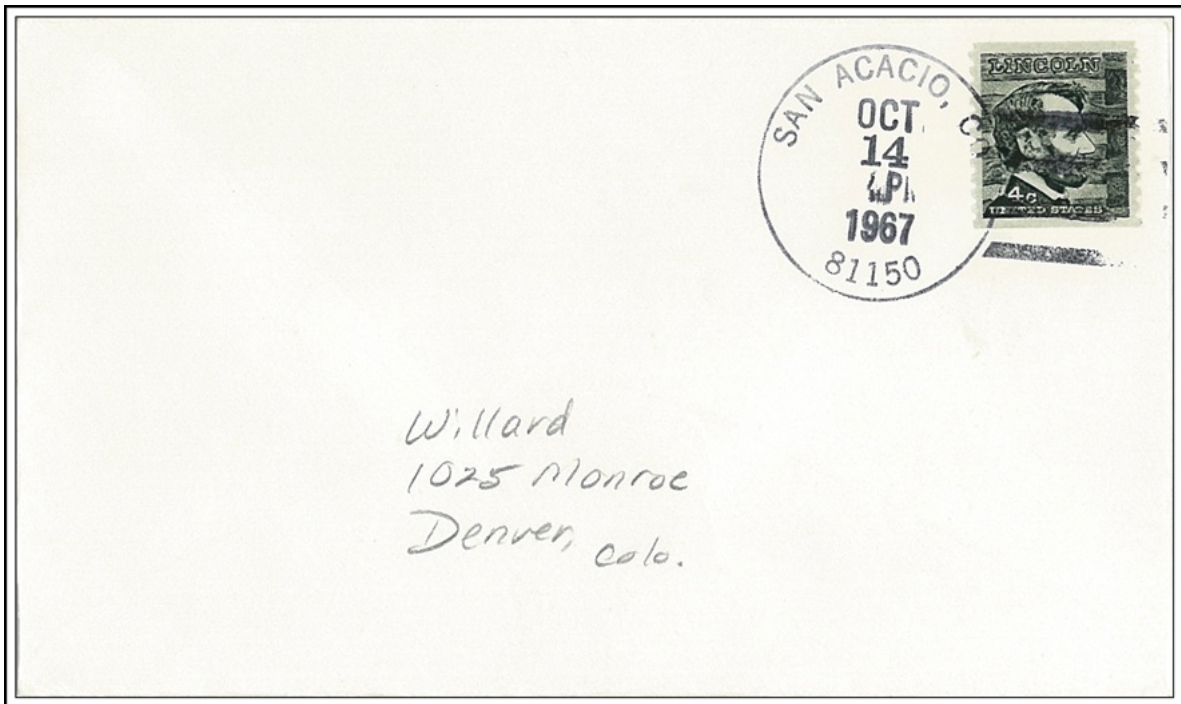 SAN ACACIO,
OCT
14
1967
81150
LINCOLN
4c
UNITED STATES
Willard
1025 Monroe
Denver, Colo.